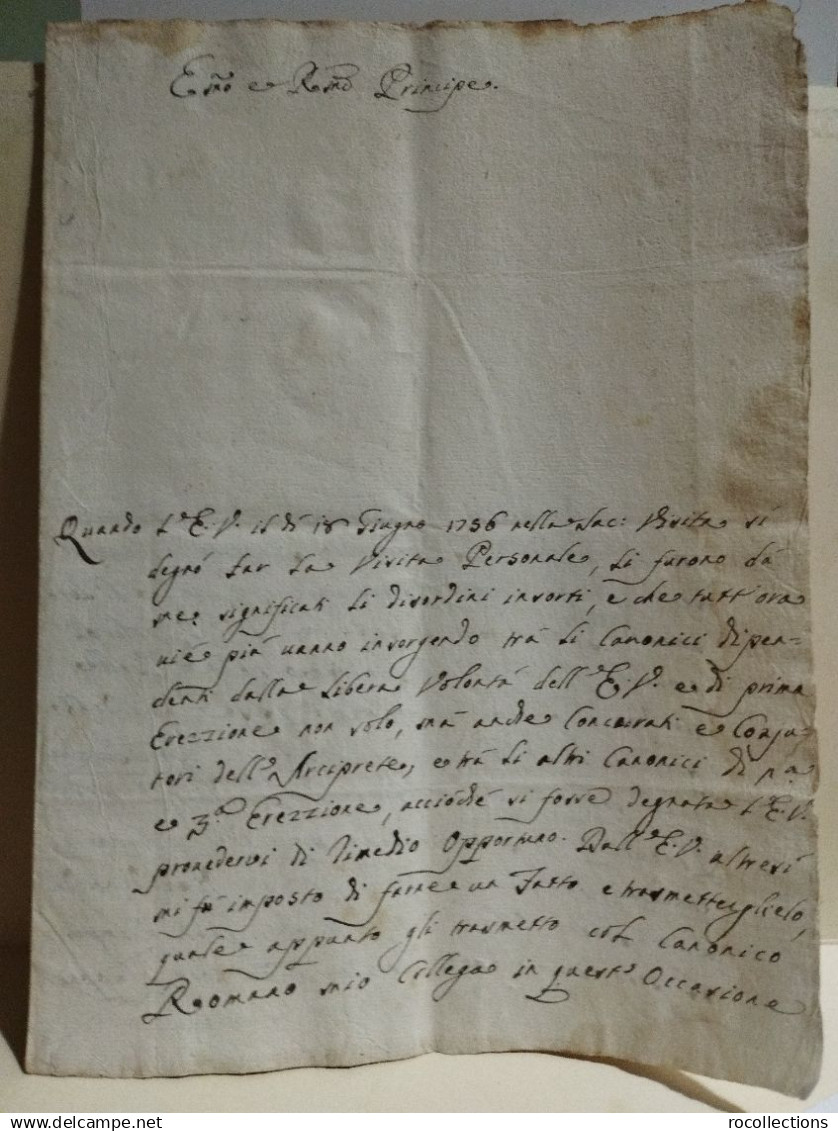 Emo e Rmo Principe.
Quando L'E. V. il dì 18 Giugno 1756 nella Sac: Visita si
degnò far la Visita Personale, li furono dà
me significati li disordini insorti, e che tutt'ora
vie più vanno insorgendo trà li Canonici dipen-
denti dalla Libera Volontà dell'E. V. e di prima
Erezzione non solo, mà anche Concurati e Conju-
tori dell'Arciprete, e trà li altri Canonici di
e 3.a Erezzione, acciòchè si fosse degnata l'E. V.
provedervi di rimedio Opportuno. Dall'E. V. altresì
mi fù imposto di farne un Fatto e trasmetterglielo,
quale appunto gli trasmetto col Canonico
Romano mio Collega in quest'Occasione
www.delcampe.net
rocollections